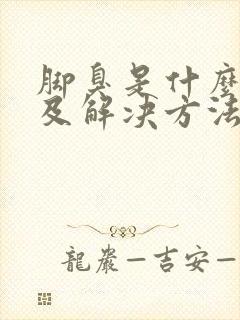 脚臭是什麼
及解決方法
龍巖—吉安—